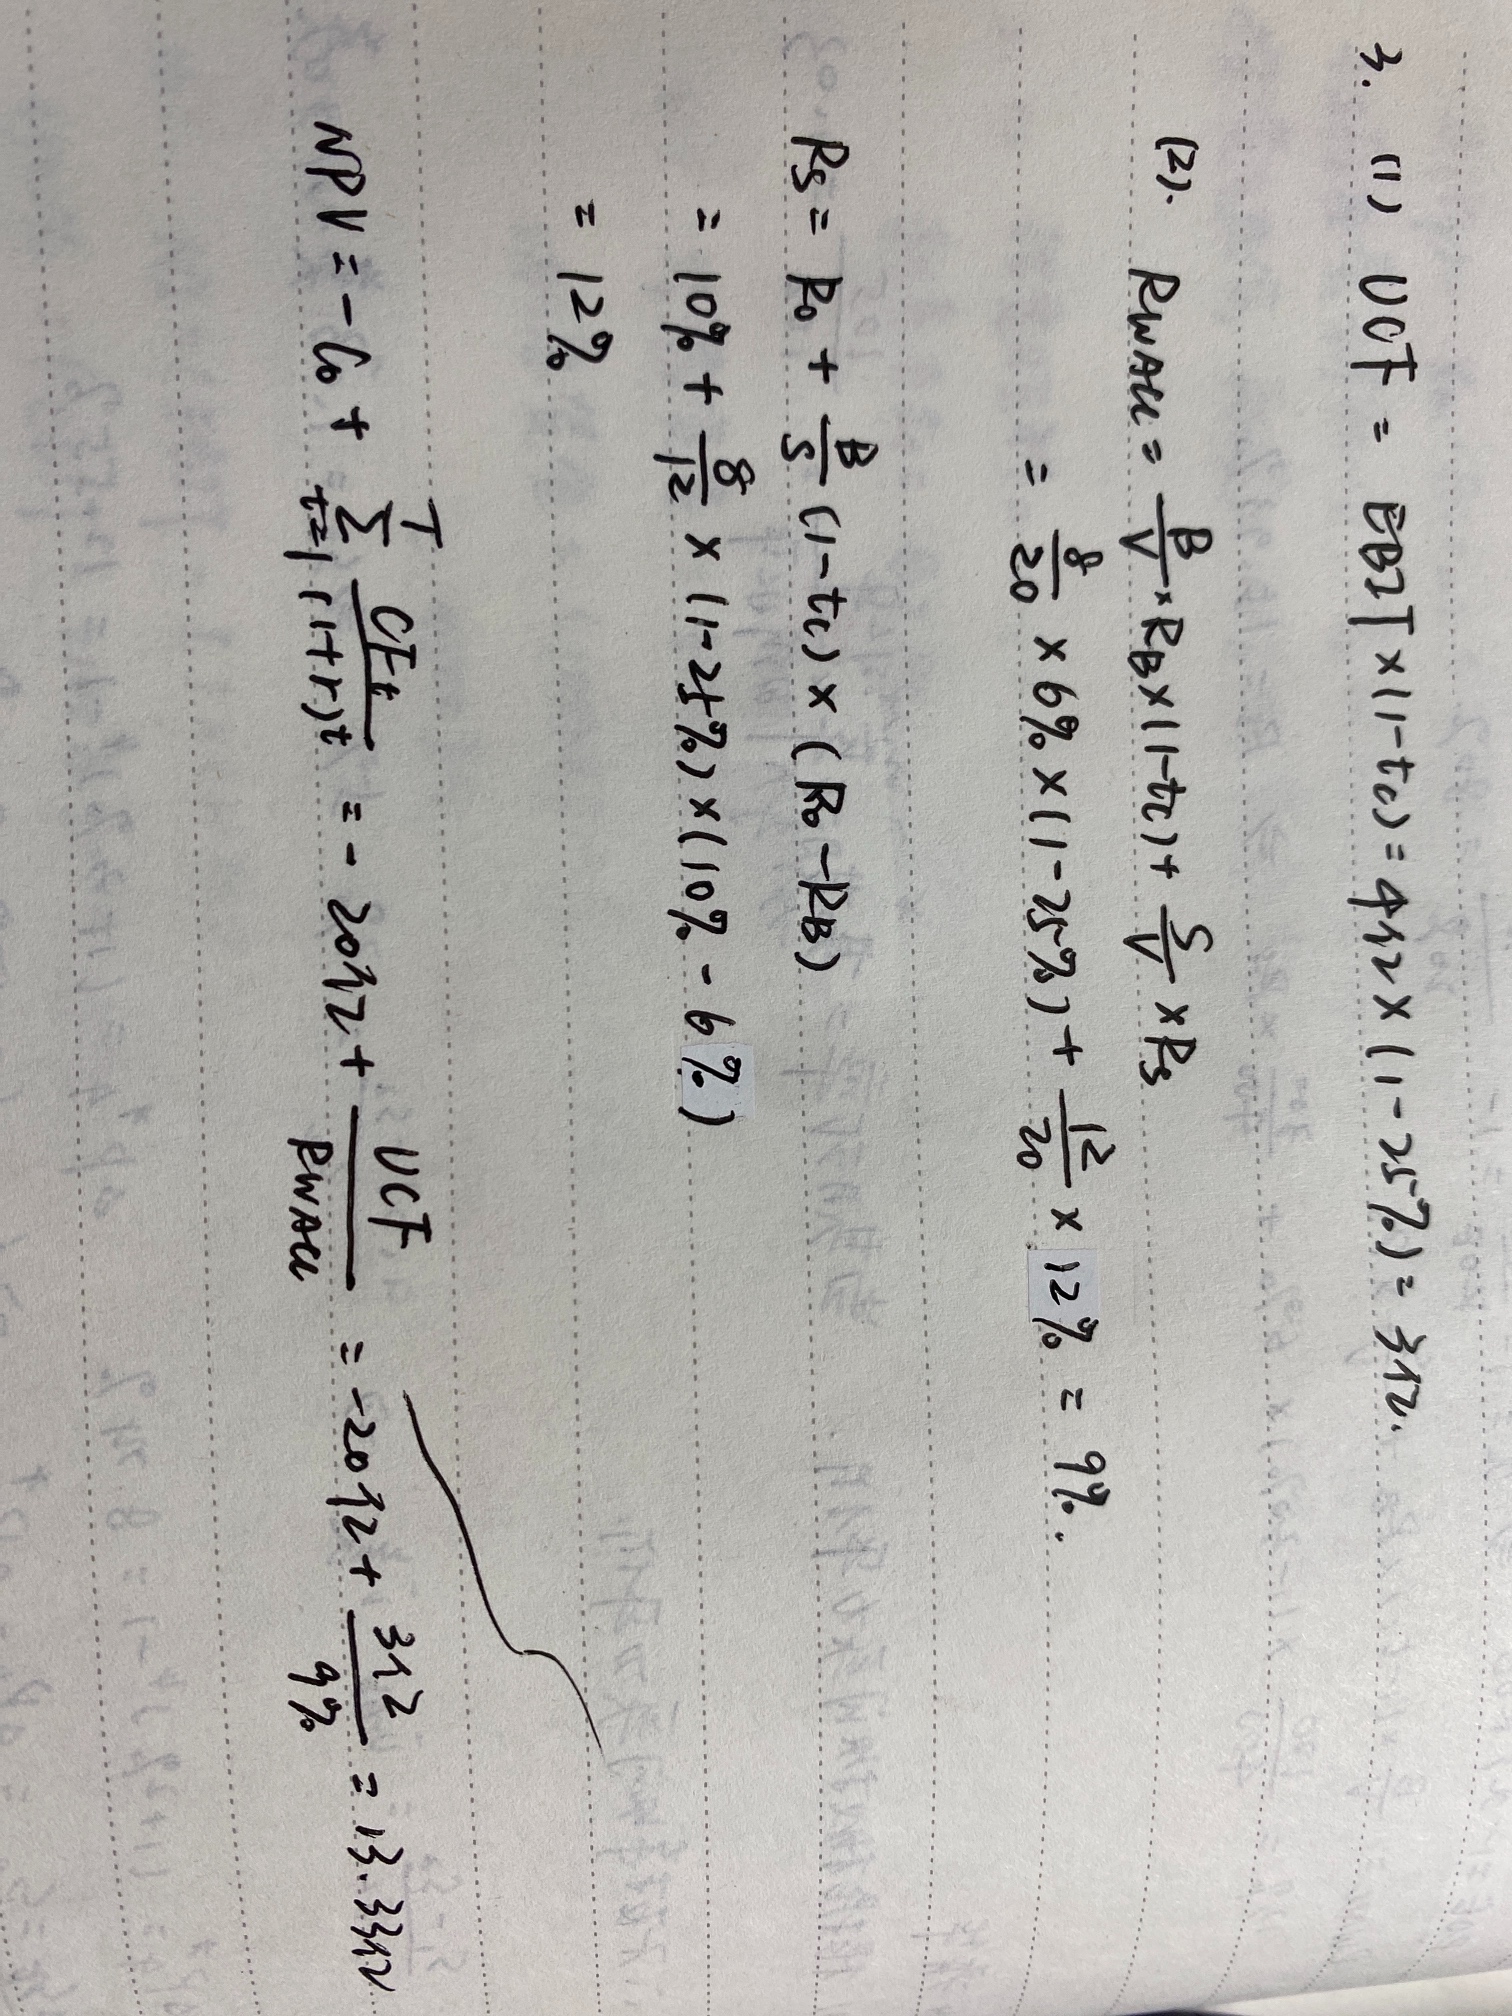 3. (1) UCF = EBIT×(1-tc) = 4亿×(1-25%) = 3亿.
(2). RWACC = B/V×RB×(1-tc)+ S/V×RS
= 8/20×6%×(1-25%)+ 12/20×12% = 9%.
RS = R0 + B/S(1-tc)×(R0-RB)
= 10% + 8/12×(1-25%)×(10%-6%)
= 12%
NPV = -C0 + T∑t=1 CFt/(1+r)^t = -20亿+ UCF/RWACC = -20亿+ 3亿/9% = 13.33亿